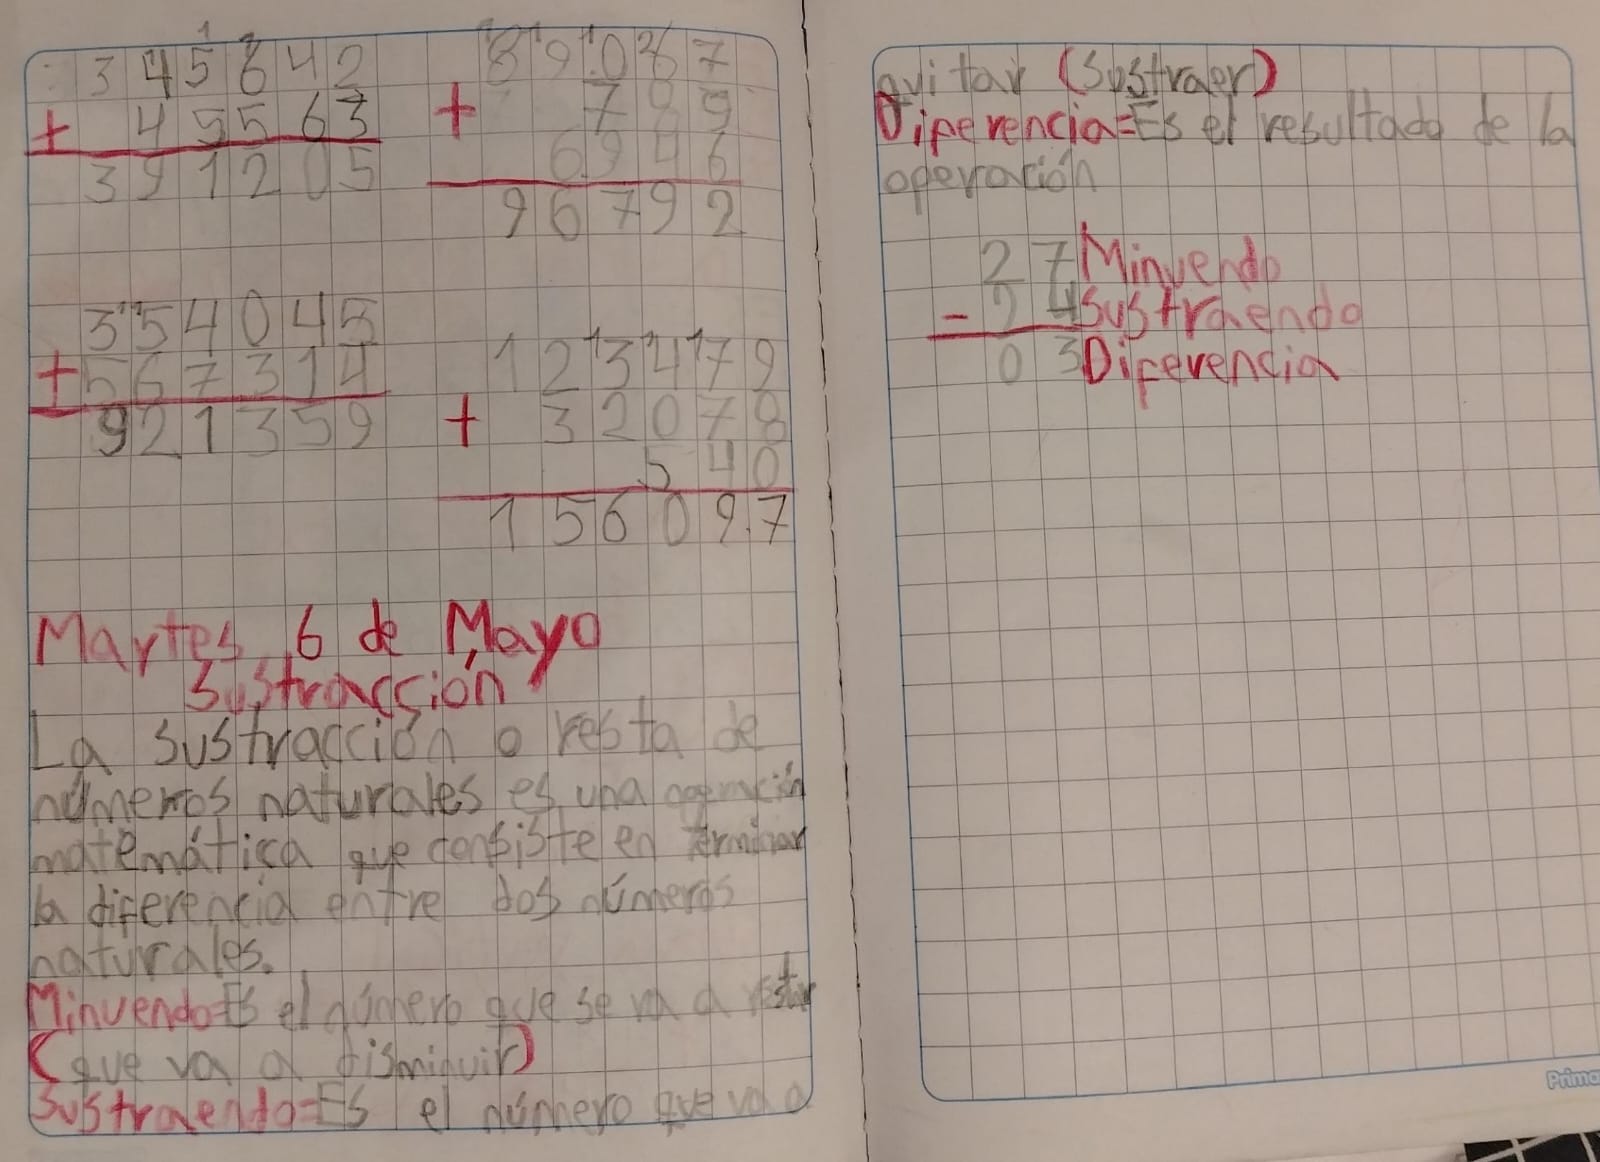 345642
+ 45563
391205
89067
+ 789
6946
96792
354045
+ 567314
921359
123479
+ 32078
540
156097
Martes 6 de Mayo
Sustracción
La sustracción o resta de
números naturales es una operación
matemática que consiste en terminar
la diferencia entre dos números
naturales.
Minuendo=Es el número que se va a restar
(que va a disminuir)
Sustraendo=Es el número que va a
quitar (Sustraer)
Diferencia=Es el resultado de la
operación
27 Minuendo
- 24 Sustraendo
03 Diferencia
Prima